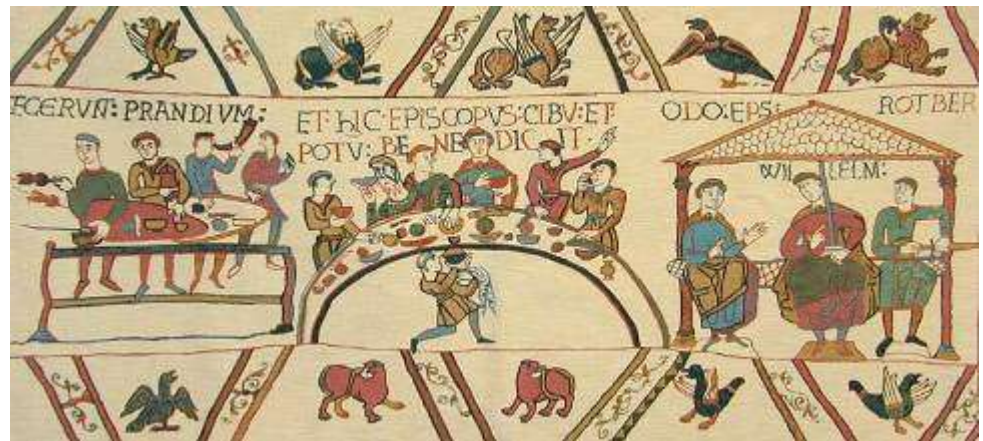 FCERVNT: PRANDIVM:
ET·hIC·EPISCOPVS:CIBV:ET·
POTV: BE NE DIC IT·
ODO:EPS:
ROTBER
WILLELM: